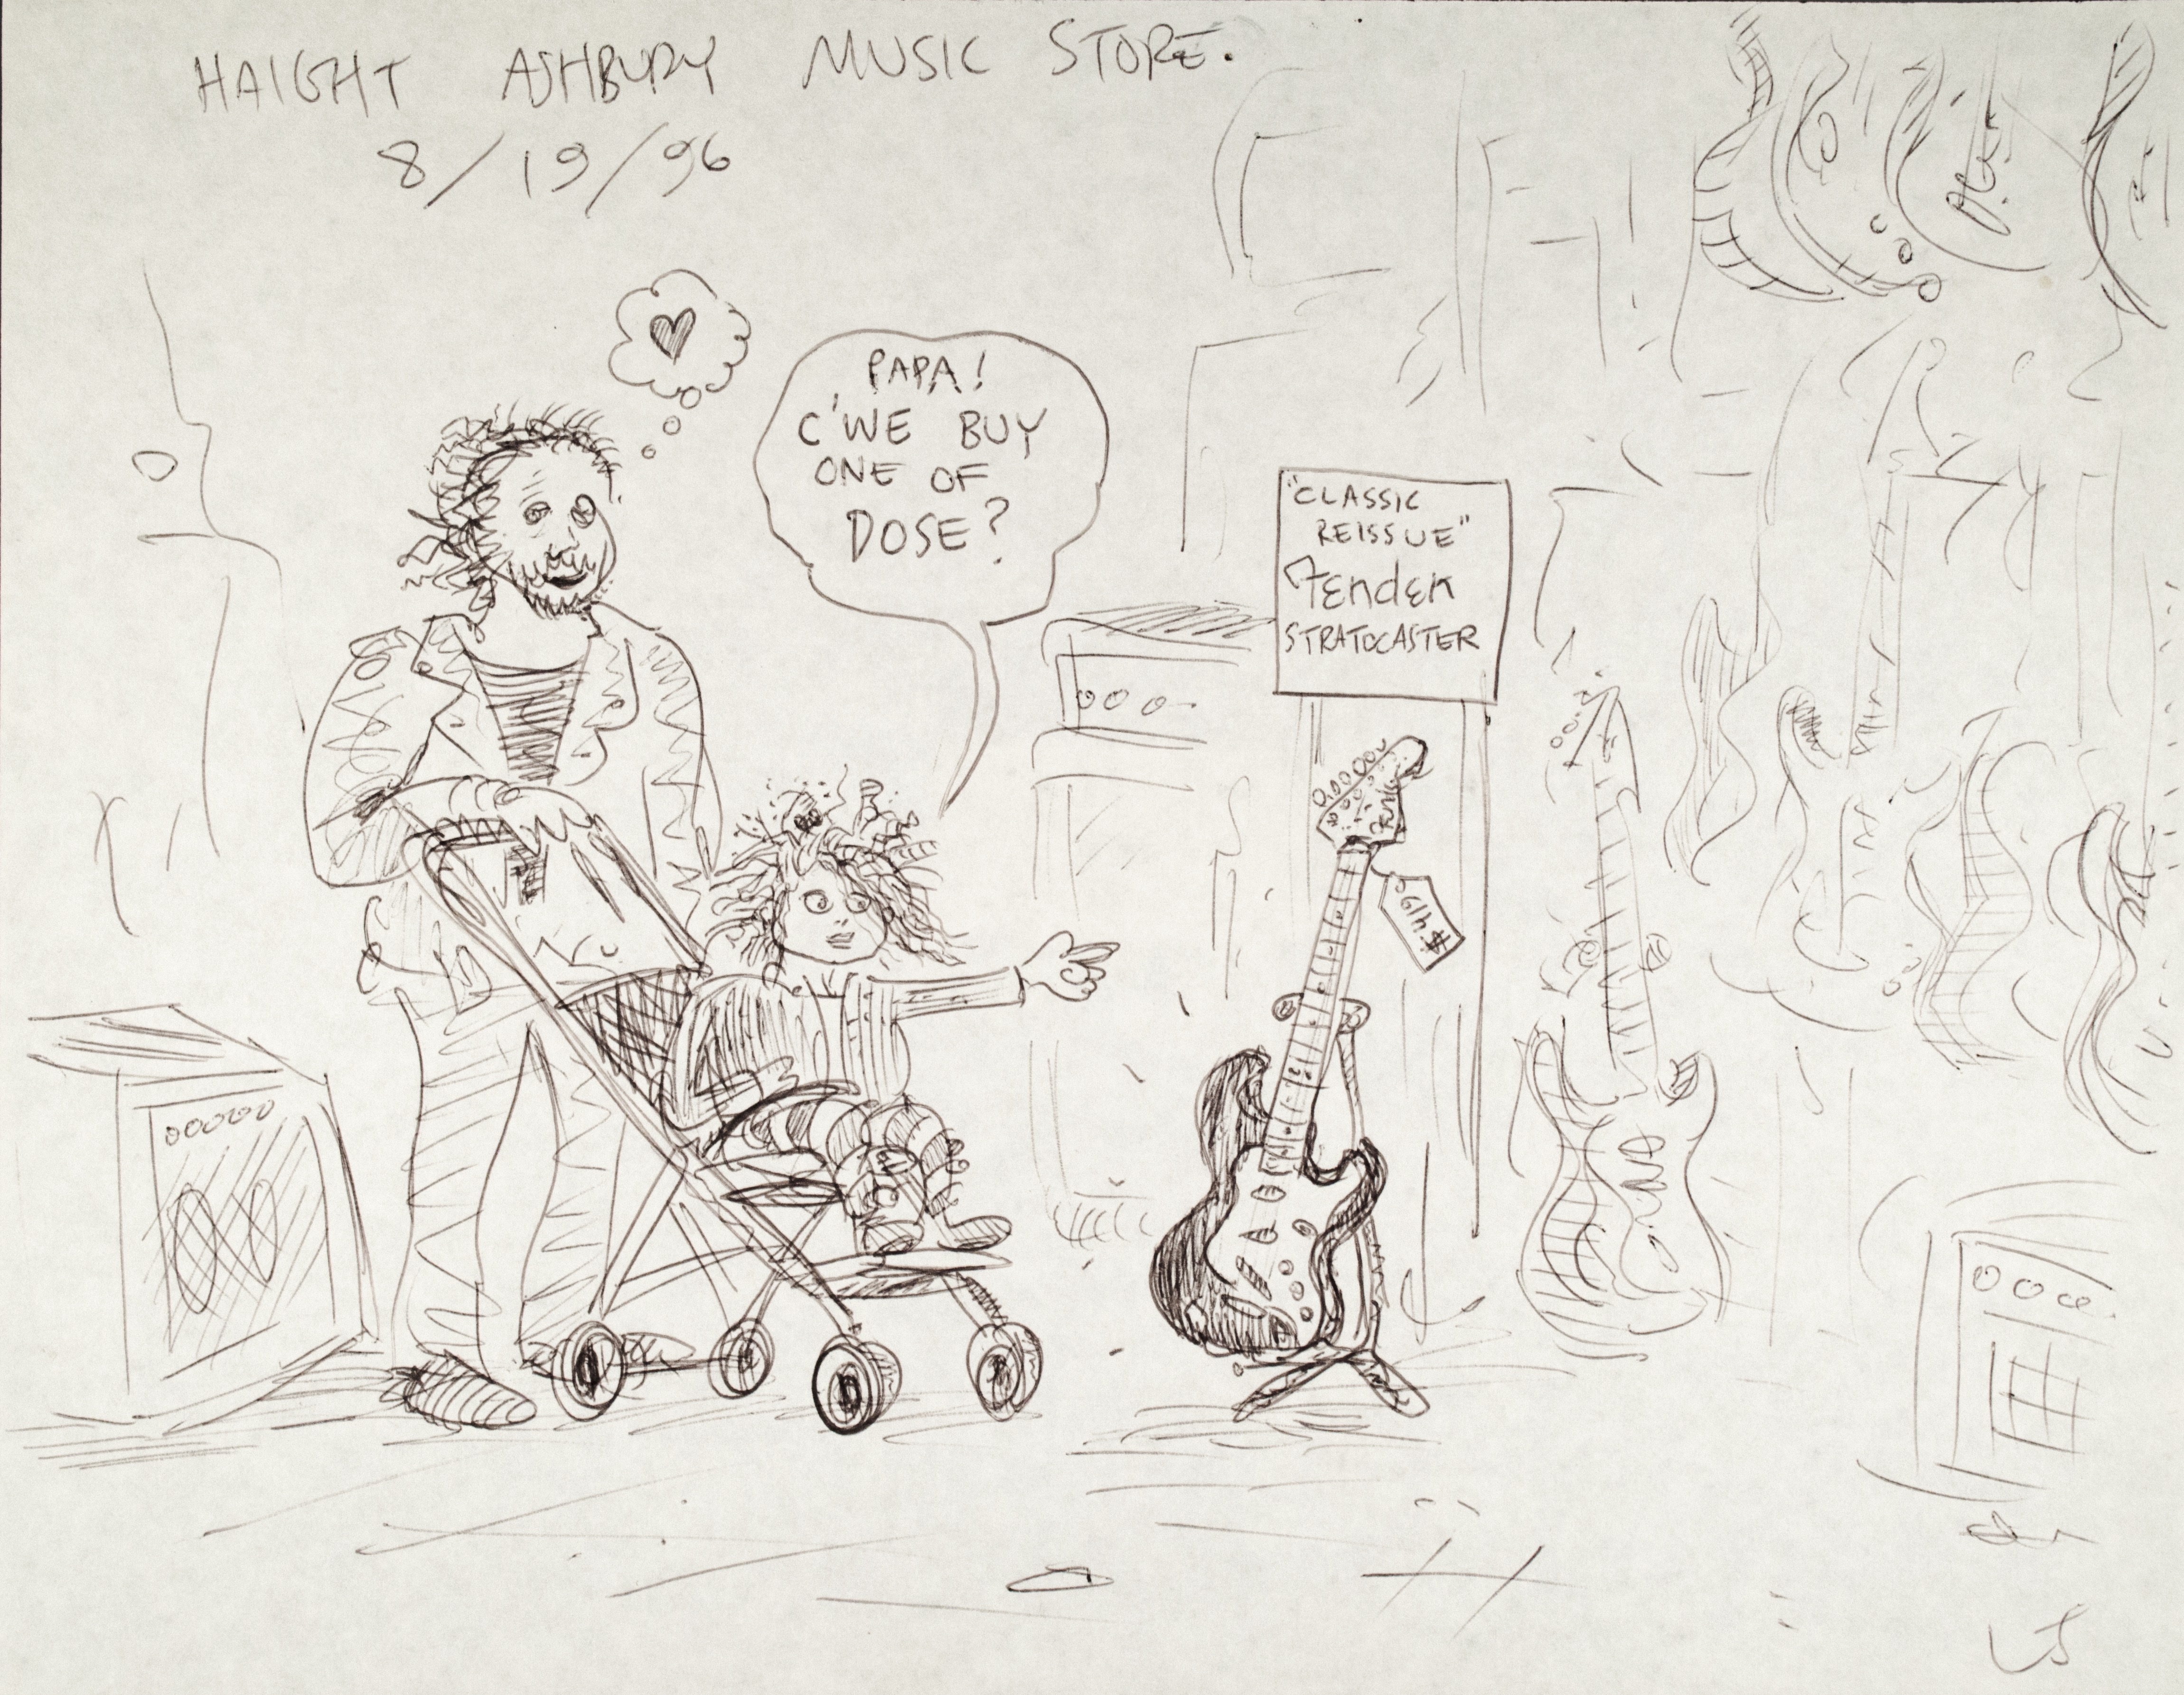 HAIGHT ASHBURY MUSIC STORE.
8/19/96
PAPA!
C'WE BUY
ONE OF
DOSE?
"CLASSIC
REISSUE"
Fender
STRATOCASTER